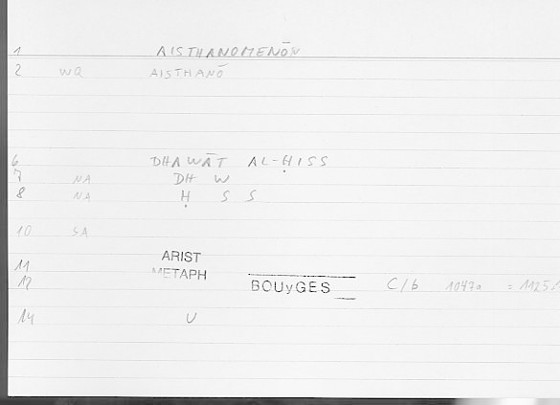 1 AISTHANOMENŌN
2 WQ AISTHANŌ
6 DHAWĀT AL-ḤISS
7 NA DH W
8 NA Ḥ S S
10 SA
ARIST
11 METAPH
12 BOUyGES C/b 1047a = 1125.
14 U